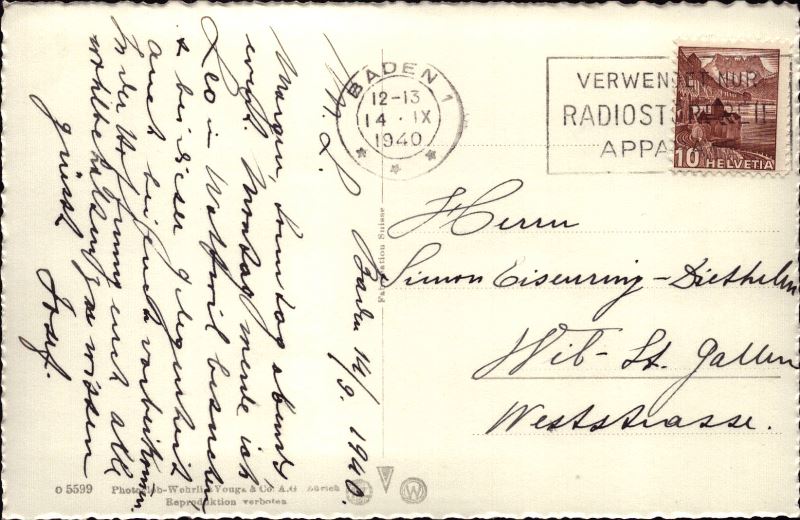 BADEN 1
12-13
14 · IX
1940
VERWENDET NUR
RADIOSTÖRFREIE
APPA
10 HELVETIA
Herrn
Simon Eisenring-Diethelm
Wil-St. Gallen
Weststrasse.
Baden 14/9. 1940.
M. L.
Morgen, Sonntag abend
evtl. Montag werde ich
Leo in Wattwil besuchen
& bei dieser Gelegenheit
auch bei euch vorbeikommen
In der Hoffnung euch alle
wohlbehalten zu wissen
grüsst Josef.
Fabrication Suisse
O 5599 Photoglob-Wehrli & Vouga & Co. A.G. Zürich
Reproduktion verboten
W